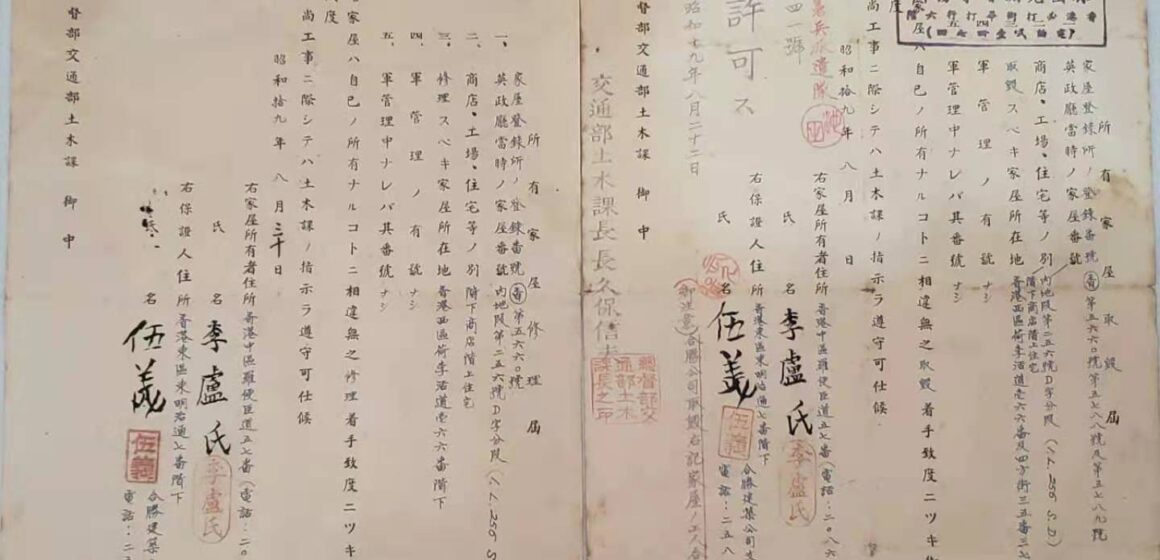 所有家屋取毀屆
家屋登錄所ノ登錄番號 香第五六六〇號第五七八八號及第五七八九號
英政廳當時ノ家屋番號 內地段第二五六號D字分段(I.L. 256 S.D)
商店、工場、住宅等ノ別 階下商店階上住宅
取毀スベキ家屋所在地 香港西區荷李活道壱六六番及四方街三五番三七
軍管理ノ有號 ナシ
軍管理中ナレバ其番號 ナシ
家屋ハ自己ノ所有ナルコトニ相違無之取毀着手致度ニツキ
度
尚工事ニ際シテハ土木課ノ指示ヲ遵守可仕候
昭和拾九年八月 日
右家屋所有者住所 香港中區羅便臣道五七番(電話:二〇八六
氏名 李盧氏
李盧氏
右保證人住所 香港東區東明治通七番階下
氏名 伍義
伍義
合勝建築公司
電話:二五八
憲兵派遣隊
四一號
許可ス
昭和十九年八月二十二日
交通部土木課長長久保信夫
總督部交通部土木課長之印
御注意)合勝公司取毀右記家屋ノ工人
督部交通部土木課 御中
所有家屋修理屆
一、家屋登錄所ノ登錄番號 香第五六六〇號
英政廳當時ノ家屋番號 內地段第二五六號D字分段(I.L. 256 S.
二、商店、工場、住宅等ノ別 階下商店階上住宅
三、修理スベキ家屋所在地 香港西區荷李活道壱六六番階下
四、軍管理ノ有號 ナシ
五、軍管理中ナレバ其番號 ナシ
家屋ハ自己ノ所有ナルコトニ相違無之修理着手致度ニツキ
度
尚工事ニ際シテハ土木課ノ指示ヲ遵守可仕候
昭和拾九年八月三十日
右家屋所有者住所 香港中區羅便臣道五七番(電話:二〇
氏名 李盧氏
李盧氏
右保證人住所 香港東區東明治通七番階下
氏名 伍義
伍義
合勝建築
電話:二
督部交通部土木課 御中